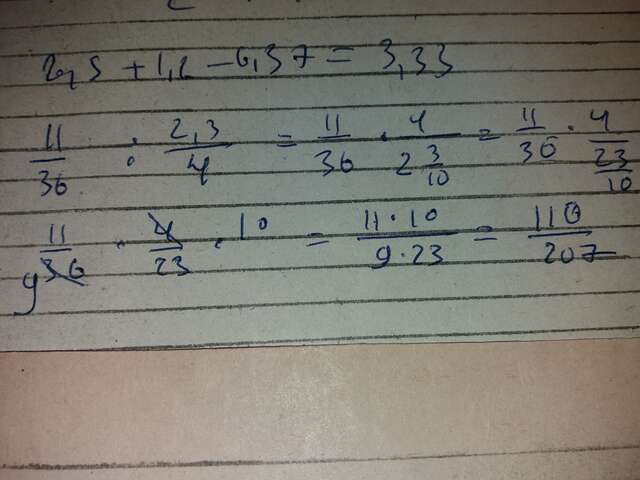 + 1,2 − 6,37 = 3,33
11/36 : 2,3/4 = 11/36 · 4/2 3/10 = 11/36 · 4/23/10
11/36 9 · 4/23 · 10 = 11·10/9·23 = 110/207